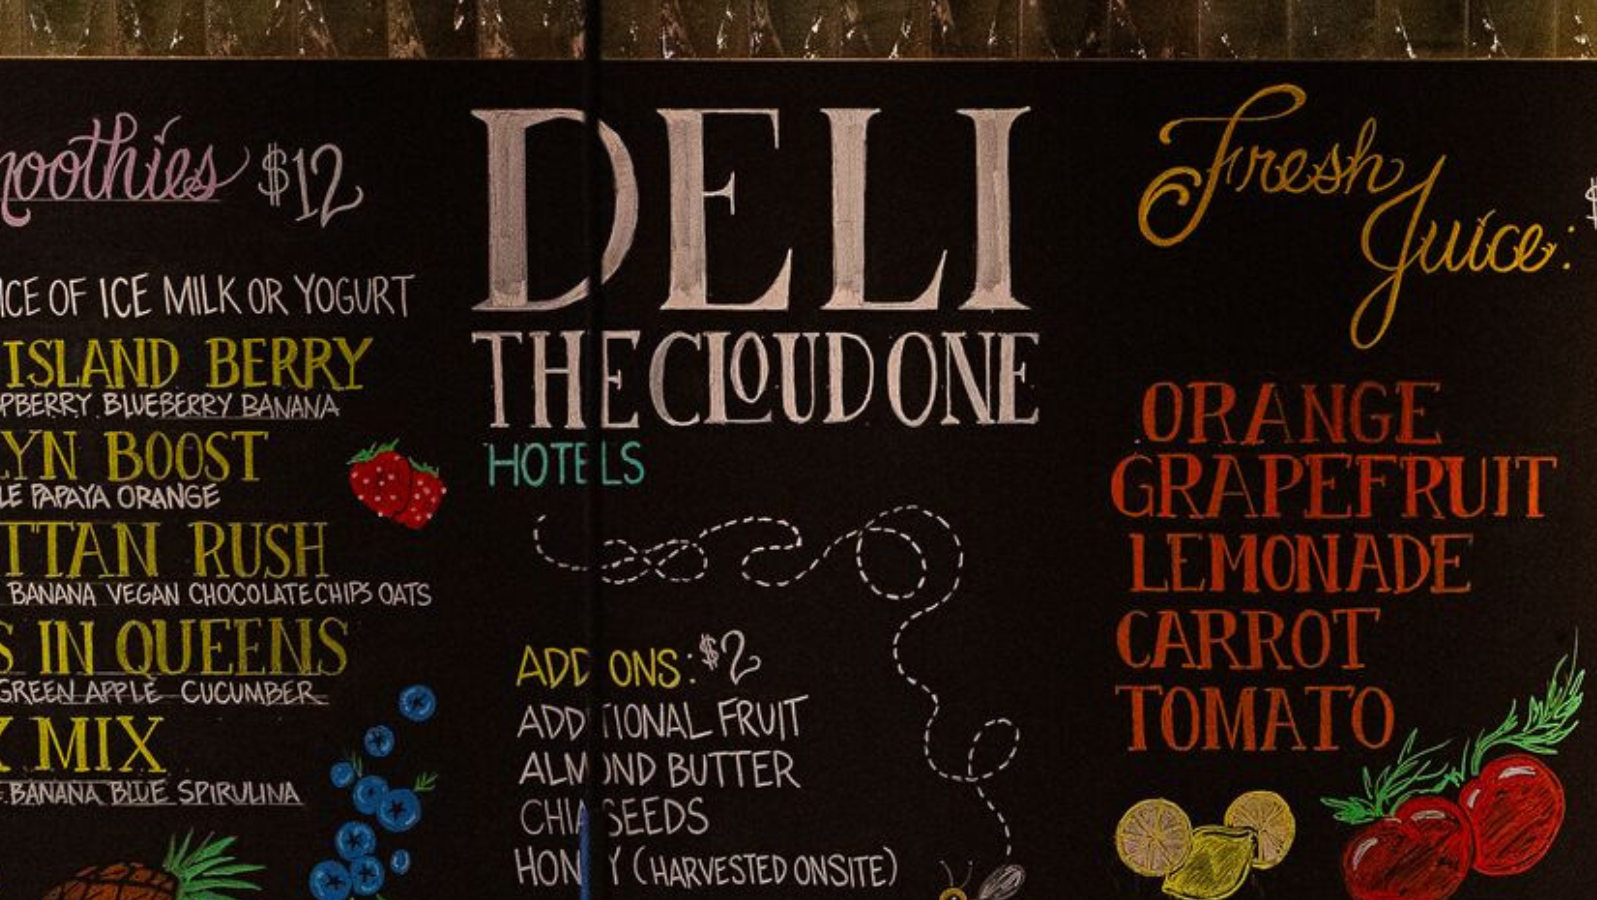 $12
OF ICE MILK OR YOGURT
ISLAND BERRY
BLUEBERRY BANANA
BOOST
PAPAYA ORANGE
RUSH
BANANA VEGAN CHOCOLATE CHIPS OATS
IN QUEENS
GREEN APPLE CUCUMBER
MIX
BANANA BLUE SPIRULINA
DELI
THE CLOUD ONE
HOTELS
ADD ONS: $2
ADDITIONAL FRUIT
ALMOND BUTTER
CHIA SEEDS
HONEY (HARVESTED ONSITE)
Fresh
Juice:
ORANGE
GRAPEFRUIT
LEMONADE
CARROT
TOMATO